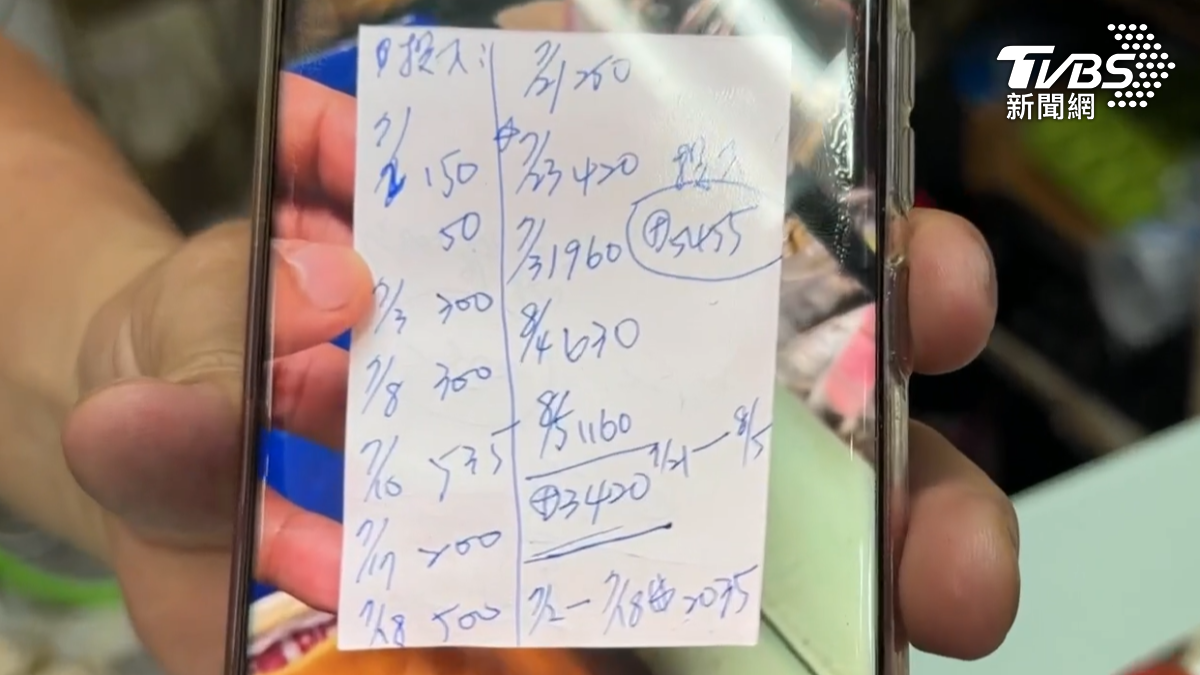 投入:
7/2 150
50
7/3 300
7/8 300
7/10 535
7/17 200
7/18 500
7/21 250
7/23 420
投入
7/31 960
⊕5455
8/4 630
8/5 1160
⊕3420 7/21—8/5
7/2—7/18 ⊕2035
TVBS
新聞網